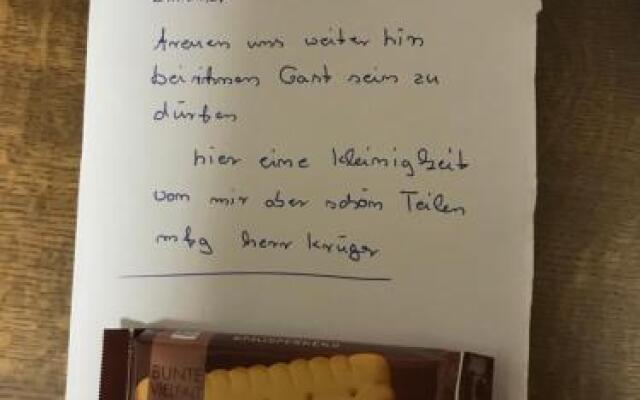 freuen uns weiter hin
bei ihnen Gast sein zu
dürfen
hier eine kleinigkeit
von mir aber schön Teilen
mfg herr krüger
KNUSPERKEKS
BUNTE
VIELFALT